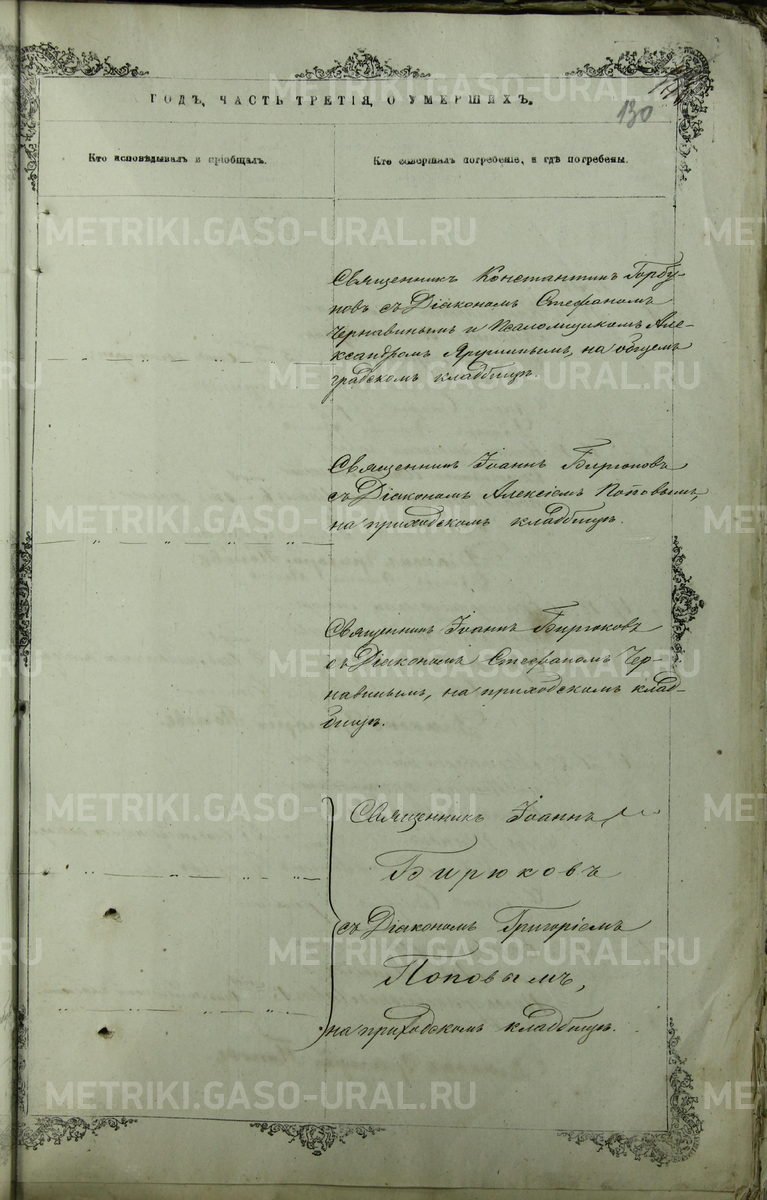 ГОДЪ, ЧАСТЬ ТРЕТІЯ, О УМЕРШИХЪ.
130
Кто исповѣдывалъ и пріобщалъ.
Кто совершалъ погребеніе, и гдѣ погребены.
Священникъ Константинъ Горбу-
новъ съ Діакономъ Стефаномъ
Чернавинымъ и Псаломщикомъ Але-
ксандромъ Ярушинымъ, на общемъ
градскомъ кладбищѣ.
Священникъ Іоаннъ Бирюковъ
съ Діакономъ Алексіемъ Поповымъ,
на приходскомъ кладбищѣ.
Священникъ Іоаннъ Бирюковъ
съ Діакономъ Стефаномъ Чер-
навинымъ, на приходскомъ клад-
бищѣ.
Священникъ Іоаннъ
Бирюковъ
съ Діакономъ Григоріемъ
Поповымъ,
на приходскомъ кладбищѣ.
METRIKI.GASO-URAL.RU